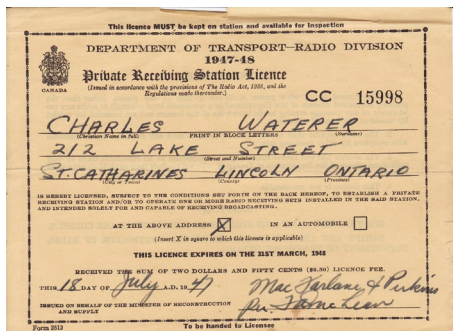 This licence MUST be kept on station and available for inspection
DEPARTMENT OF TRANSPORT—RADIO DIVISION
1947-48
Private Receiving Station Licence
CANADA
(Issued in accordance with the provisions of The Radio Act, 1938, and the
Regulations made thereunder.)
CC 15998
CHARLES WATERER
(Christian Name in full) PRINT IN BLOCK LETTERS (Surname)
212 LAKE STREET
(Street and Number)
ST. CATHARINES LINCOLN ONTARIO
(City or Town) (County) (Province)
IS HEREBY LICENSED, SUBJECT TO THE CONDITIONS SET FORTH ON THE BACK HEREOF, TO ESTABLISH A PRIVATE
RECEIVING STATION AND/OR TO OPERATE ONE OR MORE RADIO RECEIVING SETS INSTALLED IN THE SAID STATION,
AND INTENDED SOLELY FOR AND CAPABLE OF RECEIVING BROADCASTING.
AT THE ABOVE ADDRESS X IN AN AUTOMOBILE
(Insert X in square to which this licence is applicable)
THIS LICENCE EXPIRES ON THE 31ST MARCH, 1948
RECEIVED THE SUM OF TWO DOLLARS AND FIFTY CENTS ($2.50) LICENCE FEE.
THIS 18 DAY OF July A.D. 1947
MacFarlane & Perkins
Per
ISSUED ON BEHALF OF THE MINISTER OF RECONSTRUCTION
AND SUPPLY
Form 2613
To be handed to Licensee